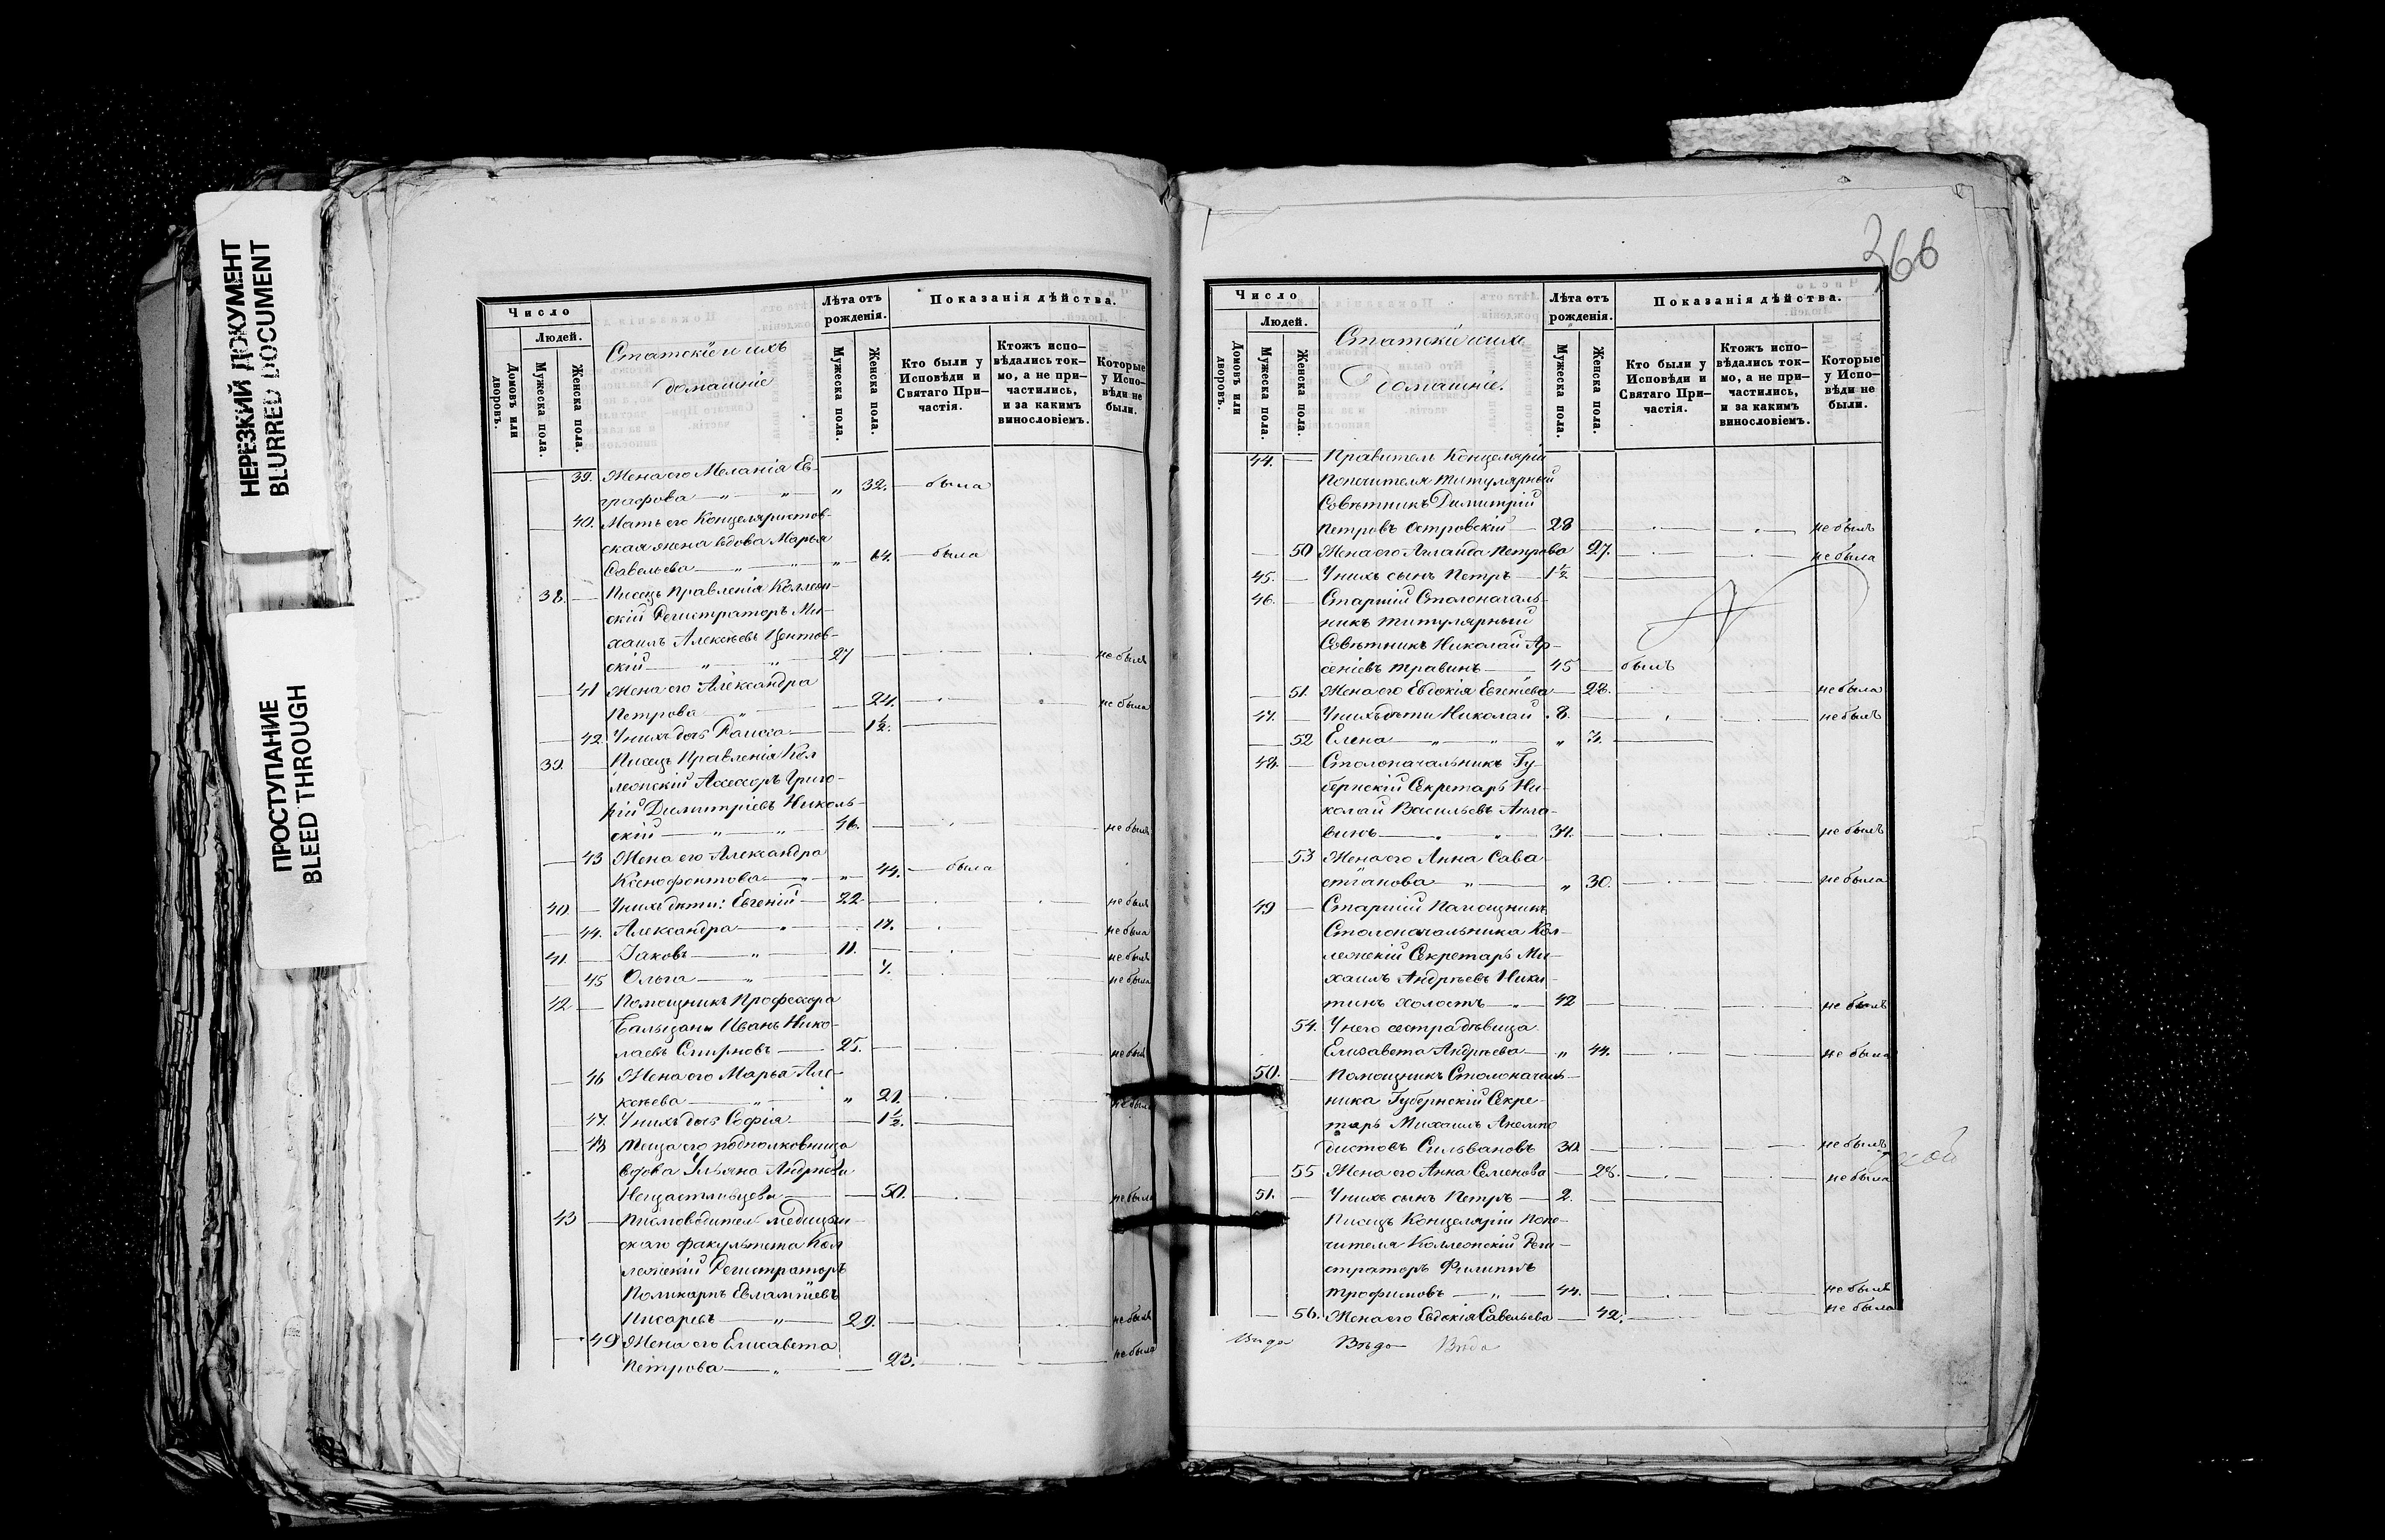 НЕРЕЗКИЙ ДОКУМЕНТ
BLURRED DOCUMENT
ПРОСТУПАНИЕ
BLEED THROUGH
Число
Людей.
Домовъ или дворовъ.
Мужеска пола.
Женска пола.
Статскіе и ихъ
домашніе
Лѣта отъ рожденія.
Мужеска пола.
Женска пола.
Показанія дѣйства.
Кто были у Исповѣди и Святаго Причастія.
Ктожъ исповѣдались токмо, а не причастились, и за какимъ винословіемъ.
Которые у Исповѣди не были.
39. Жена его Меланія Ев-
графова — " — " " 32. — была
40. Мать его Канцеляристов-
ская жена вдова Марья
Савельева — " — " " 64. — была
38. — Писецъ Правленія Коллеж-
скій Регистраторъ Ми-
хаилъ Алексѣевъ
скій — " — " 27 — не былъ
41 Жена его Александра
Петрова — " — 24. не была
42. У нихъ дочь Раисса — 1½.
39. — Писецъ Правленія Кол
лежскій Ассесоръ Григо-
рій Димитріевъ Николь-
скій — " — " 46. — не былъ
43 Жена его Александра
Ксенофонтова — " — " 44. — была
40. — У нихъ дѣти: Евгеній — 22 — не былъ
44. Александра — " 17. не была
41. — Іаковъ — " — 11. не былъ
45 Ольга — " — 7. не была
42 — Помощникъ Профессора
Бальцани Иванъ Нико-
лаевъ Смирновъ — 25. — не былъ
46 Жена его Марья Але-
ксѣева — " " 21. не была
47. У нихъ дочь Софія — 1½.
48 Теща его подполковница
вдова Ульяна Андреева
Нещастливцева — 50. не была
43 — Писмоводитель медицын-
скаго факультета Кол
лежскій Регистраторъ
Поликарпъ Евлампіевъ
Писаревъ — " — 29. — не былъ
49 Жена его Елисавета
Петрова — " — 23. не была
366
Число
Людей.
Домовъ или дворовъ.
Мужеска пола.
Женска пола.
Статскіе и ихъ
Домашніе.
Лѣта отъ рожденія.
Мужеска пола.
Женска пола.
Показанія дѣйства.
Кто были у Исповѣди и Святаго Причастія.
Ктожъ исповѣдались токмо, а не причастились, и за какимъ винословіемъ.
Которые у Исповѣди не были.
44. — Правитель Канцеляріи
Попечителя Титулярный
Совѣтникъ Димитрій
Петровъ Островскій — 28 — не былъ
50 Жена его Аглаида Петрова 27. — не была
45. — У нихъ сынъ Петръ — 1½
46. — Старшій Столоначаль-
никъ Титулярный
Совѣтникъ Николай Ар-
сеніевъ Травинъ — 45 — былъ
51. Жена его Евдокія Евгеніева — 28. не была
47. — У нихъ дѣти Николай 8. — не былъ
52 Елена — " — " " 3.
48. — Столоначальникъ Гу-
бернскій Секретарь Ни-
колай Васильевъ Апла-
винъ — " — " 34. — не былъ
53 Жена его Анна Сава
стіанова — " — " 30. не была
49 — Старшій Помощникъ
Столоначальника Кол-
лежскій Секретарь Ми-
хаилъ Андреевъ Ники-
тинъ холостъ — " — 42 — не былъ
54. У него сестра дѣвица
Елизавета Андреева — " 44. не была
50. — Помощникъ Столоначаль-
ника Губернскій Секре-
тарь Михаилъ
Сильвановъ 30. — не былъ
55 Жена его Анна Семенова — 28. не была
51. — У нихъ сынъ Петръ — 2.
Писецъ Канцеляріи Попе-
чителя Коллежскій Реги-
страторъ Филиппъ
Трофимовъ — " — 44. — не былъ
56. Жена его Евдокія Савельева — 42. не была